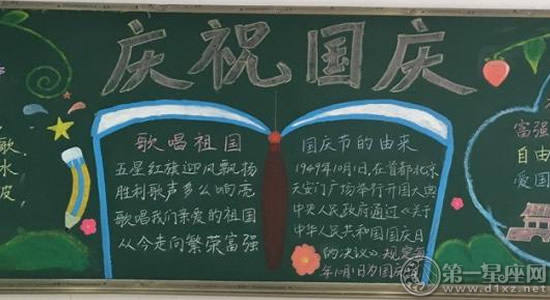 庆祝国庆
歌
水
皮
歌唱祖国
五星红旗迎风飘扬
胜利歌声多么响亮
歌唱我们亲爱的祖国
从今走向繁荣富强
国庆节的由来
1949年10月1日,在首都北京
天安门广场举行开国大典
中央人民政府通过《关于
中华人民共和国国庆日
的决议》规定每
年10月1日为国庆
富强
自由
爱国
第一星座网
www.d1xz.net